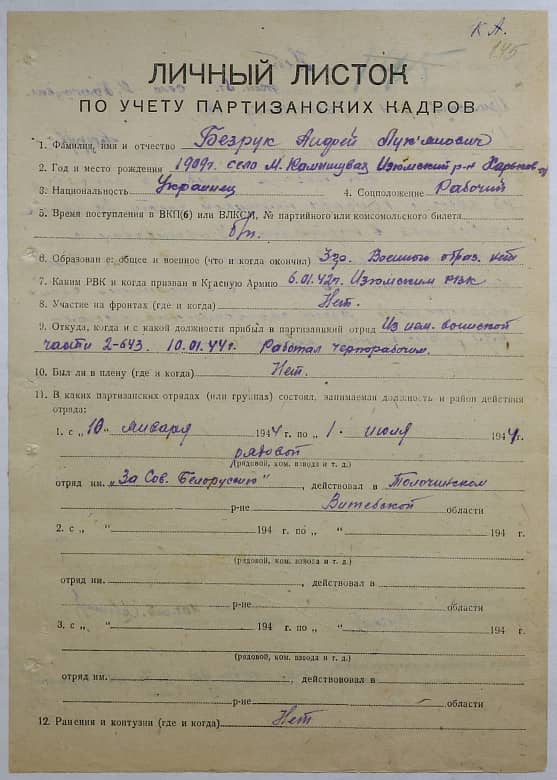 К А.
145
ЛИЧНЫЙ ЛИСТОК
ПО УЧЕТУ ПАРТИЗАНСКИХ КАДРОВ
1. Фамилия, имя и отчество Безрук Андрей Лук'янович
2. Год и место рождения 1909г. село М. Камышуваха Изюмский р-н Харьков о
3. Национальность Украинец 4. Соцположение Рабочий
5. Время поступления в ВКП(б) или ВЛКСМ, № партийного или комсомольского билета
б/п.
6. Образование: общее и военное (что и когда окончил) 3гр. Военного образ. нет
7. Каким РВК и когда призван в Красную Армию 6.01.42г. Изюмским РВК
8. Участие на фронтах (где и когда) Нет.
9. Откуда, когда и с какой должности прибыл в партизанский отряд Из нем. воинской
части 2-643. 10.01.44г. Работал чернорабочим.
10. Был ли в плену (где и когда) Нет.
11. В каких партизанских отрядах (или группах) состоял, занимаемая должность и район действия
отряда:
1. с „ 10 " января 1944 г. по „ 1 " июля 1944 г.
рядовой
(рядовой, ком. взвода и т. д.)
отряд им. „За Сов. Белоруссию", действовал в Толочинском
р-не Витебской области
2. с „ " 194 г. по „ " 194 г.
(рядовой, ком. взвода и т. д.)
отряд им. , действовал в
р-не области
3. с „ " 194 г. по „ " 194 г.
(рядовой, ком. взвода и т. д.)
отряд им. , действовал в
р-не области
12. Ранения и контузии (где и когда) Нет